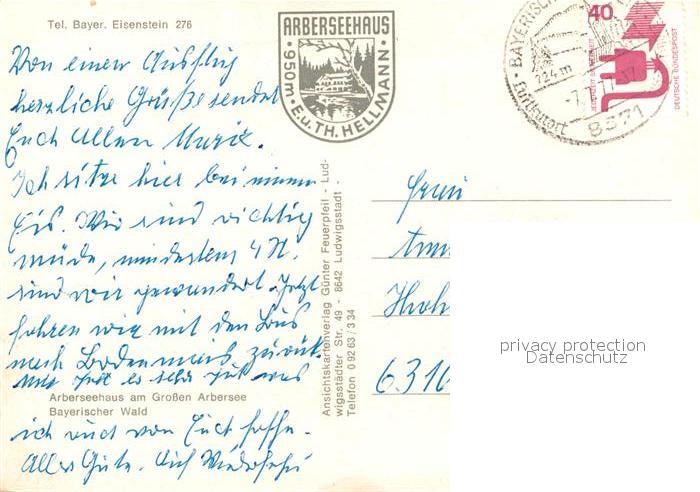 Tel. Bayer. Eisenstein 276
ARBERSEEHAUS
· 950m · E.u.TH. HELLMANN ·
40
DEUTSCHE BUNDESPOST
724m
Luftkurort
8371
Von einem Ausflug
herzliche Grüße sendet
Euch Allen
Ich sitze hier bei einem
Eis. Wir sind richtig
müde, mindestens 4 St.
sind wir gewandert. Jetzt
fahren wir mit dem Bus
nach Bodenmais zurück.
Mir geht es sehr gut was
Arberseehaus am Großen Arbersee
Bayerischer Wald
ich auch von Euch hoffe.
Alles Gute. Auf Wiedersehn
Ansichtskartenverlag Günter Feuerpfeil - Lud-
wigsstädter Str. 49 - 8642 Ludwigsstadt -
Telefon 0 92 63 / 3 34
Frau
6310
privacy protection
Datenschutz